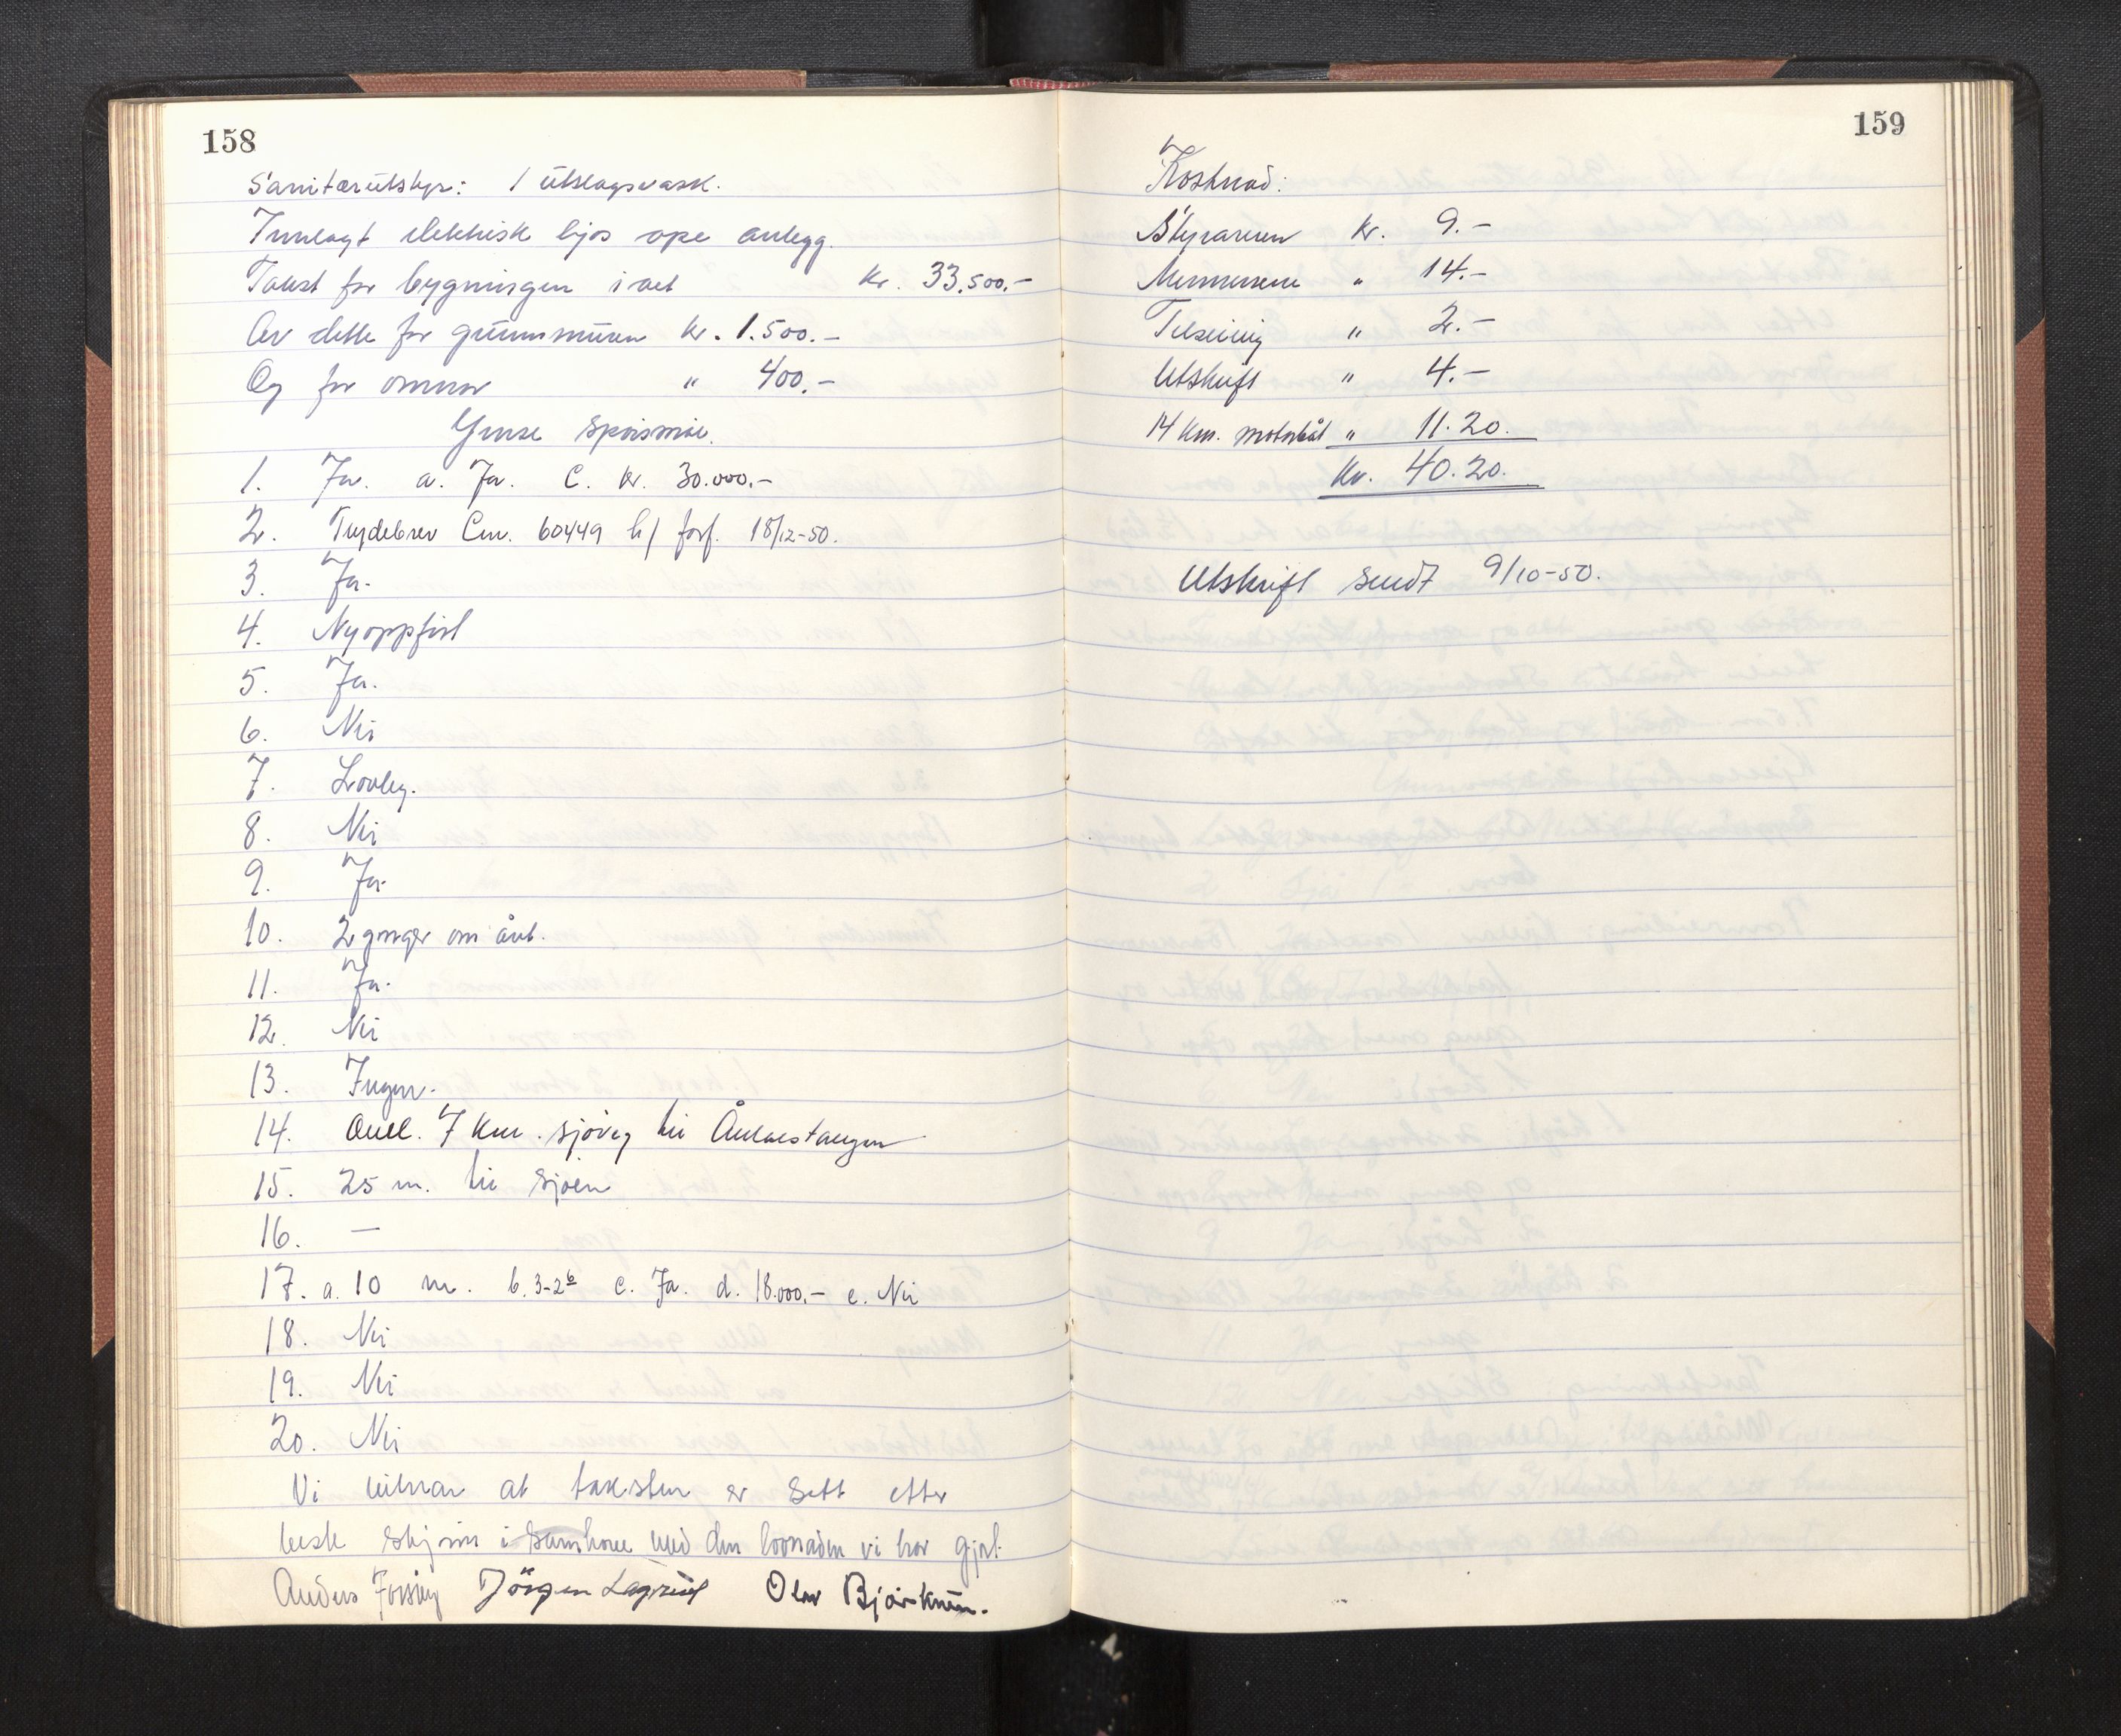 158
Sanitærutstyr: 1 utslagsvask.
Innlagt elektrisk ljos ope anlegg.
Takst for bygningen i alt kr. 33.500.-
Av dette for grunnmuren kr. 1.500.-
Og for omnar " 400.-
Ymse spørsmål.
1. Ja. a. Ja. C. kr. 30.000.-
2. Trydebrev 60449 forf. 18/12-50.
3. Ja.
4. Nyoppført
5. Ja.
6. Nei
7. Lovleg.
8. Nei
9. Ja.
10. 2 ganger om året.
11. Ja.
12. Nei
13. Ingen.
14. 7 km. sjöveg til
15. 25 m. til sjøen
16. —
17. a. 10 m. b. 3-2 c. Ja. d. 18.000.- e. Nei
18. Nei
19. Nei
20. Nei
Vi vitnar at taksten er sett etter
beste skjønn i samhøve med den lovnaden vi har gjort.
Anders Jörgen Olav
159
Kostnad:
Styraren kr. 9.-
Mennene " 14.-
Tilseiing " 2.-
Utskrift " 4.-
14 km. motorbåt " 11.20.
Kr. 40.20.
Utskrift sendt 9/10-50.